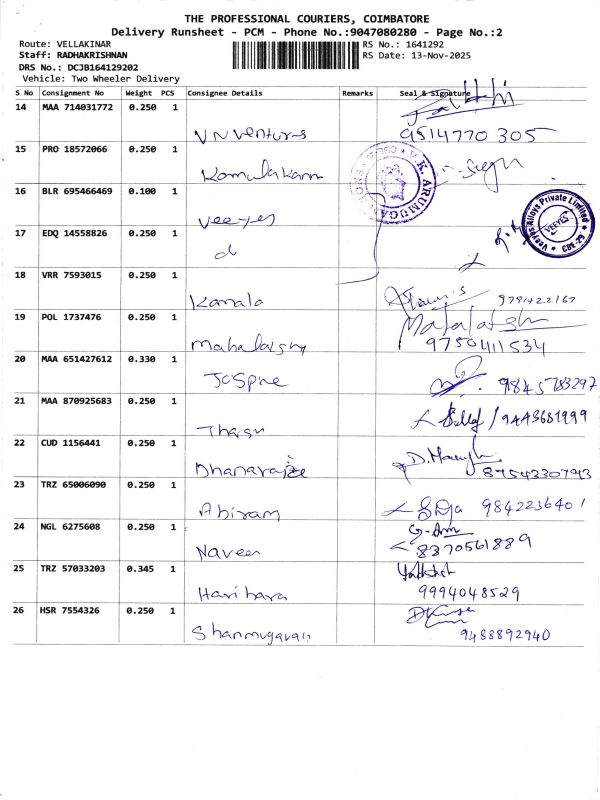 THE PROFESSIONAL COURIERS, COIMBATORE
Delivery Runsheet - PCM - Phone No.:9047080280 - Page No.:2
Route: VELLAKINAR
RS No.: 1641292
Staff: RADHAKRISHNAN
RS Date: 13-Nov-2025
DRS No.: DCJB164129202
Vehicle: Two Wheeler Delivery
S No Consignment No Weight PCS Consignee Details Remarks Seal & Signature
14 MAA 714031772 0.250 1
VN Ventures 9514770 305
15 PRO 18572066 0.250 1
V.K. ARUMUGA
16 BLR 695466469 0.100 1
Veeyes
Veeyes Alloys Private Limited
VEEYES
CBE-29
17 EDQ 14558826 0.250 1
d
18 VRR 7593015 0.250 1
Kamala
19 POL 1737476 0.250 1
Mahalakshmi 9750411534
20 MAA 651427612 0.330 1
9845783297
21 MAA 870925683 0.250 1
9443681999
22 CUD 1156441 0.250 1
8754230793
23 TRZ 65006090 0.250 1
Abiram 9842236401
24 NGL 6275608 0.250 1
Naveen 8370561889
25 TRZ 57033203 0.345 1
Hari hara 9994048529
26 HSR 7554326 0.250 1
9488892940